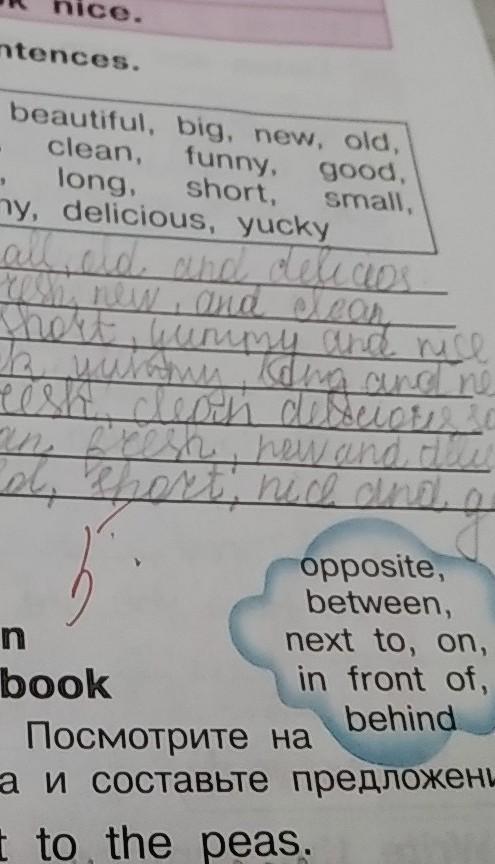 nice.
ntences.
beautiful, big, new, old,
clean, funny, good,
long, short, small,
ny, delicious, yucky
all, old and delicios
resh, new, and clean
short, yummy and nice
yummy, long and ne
eesh, clean
an, fresh, new and
ld, short, nice and g
5
opposite,
between,
next to, on,
in front of,
behind
n
book
Посмотрите на
а и составьте предложени
t to the peas.